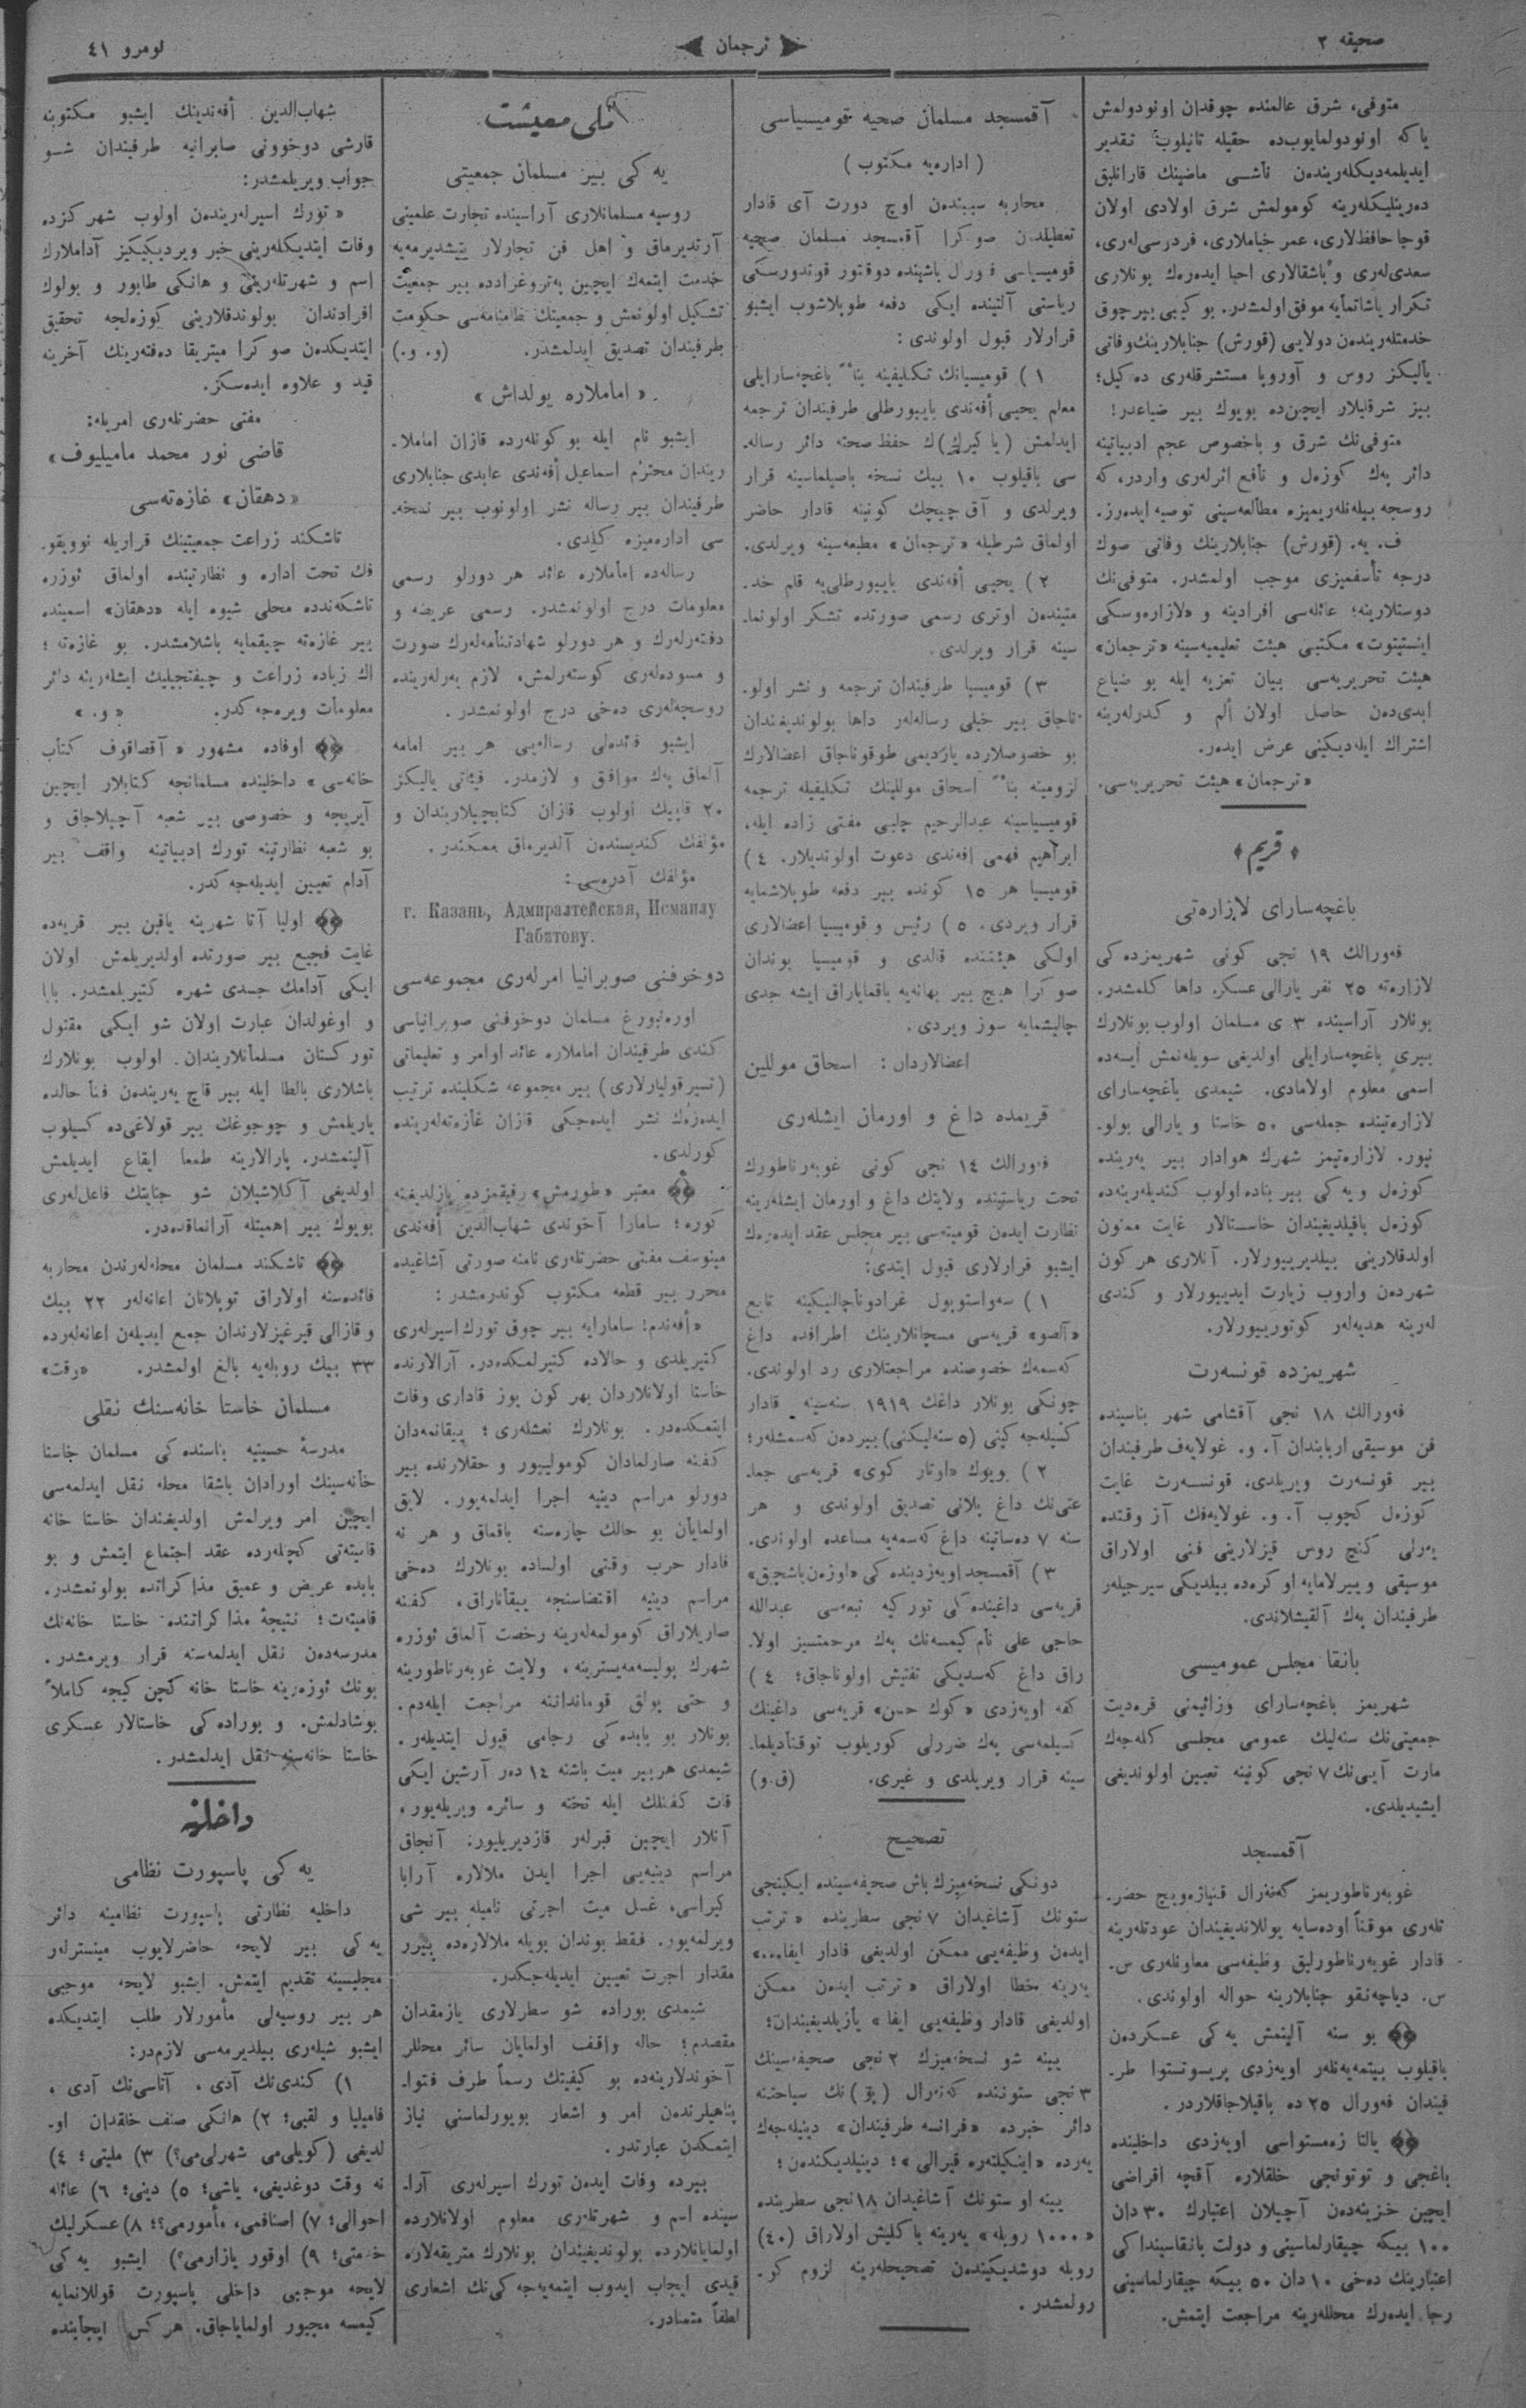 صحيفه ٢
ترجمان
نومرو ٤١
متوفى، شرق عالمنده چوقدان اونودولمش
ياكه اونودولمايوب‌ده حقيله تانيلوب تقدير
ايديلمه‌ديكله‌ريندن ناشى ماضينك قارانلق
ده‌رينليكله‌رينه كومولمش شرق اولادى اولان
قوجا حافظ‌لارى، عمر خياملارى، فردرسى‌له‌رى،
سعدى‌له‌رى و باشقالارى احيا ايده‌رەك بونلارى
تكرار ياشاتمايه موفق اولمشدر. بو كيبى بيرچوق
خدمتله‌ريندن دولايى (قورش) جنابلارينك وفاتى
يالكز روس و آوروپا مستشرقله‌رى ده‌كيل؛
بيز شرقليلار ايچين‌ده بويوك بير ضياعدر!
متوفى‌نك شرق و باخصوص عجم ادبياتينه
دائر پەك كوزه‌ل و نافع اثرله‌رى واردر، كه
روسجه بيله‌نله‌ريميزه مطالعه‌سينى توصيه ايده‌رز.
ف. يه. (قورش) جنابلارينك وفاتى صوك
درجه تأسفميزى موجب اولمشدر. متوفى‌نك
دوستلارينه؛ عائله‌سى افرادينه و «لازاره‌وسكى
اينستيتوت» مكتبى هيئت تعليميه‌سينه «ترجمان»
هيئت تحريريه‌سى بيان تعزيه ايله بو ضياع
ابدى‌دن حاصل اولان ألم و كدرله‌رينه
اشتراك ايله‌ديكينى عرض ايده‌ر.
«ترجمان» هيئت تحريريه‌سى.
﴿ قريم ﴾
باغچه‌ساراى لازاره‌تى
فه‌ورالك ١٩ نجى كونى شهريمزده‌كى
لازاره‌ته ٢٥ نفر يارالى عسكر داها كلمشدر.
بونلار آراسينده ٣ ى مسلمان اولوب بونلارك
بيرى باغچه‌سارايلى اولديغى سويله‌نمش ايسه‌ده
اسمى معلوم اولامادى. شيمدى باغچه‌ساراى
لازاره‌تينده جمله‌سى ٥٠ خاستا و يارالى بولو-
نيور. لازاره‌تيمز شهرك هوادار بير يه‌رينده
كوزه‌ل و يه‌كى بير بناده اولوب كنديله‌رينه‌ده
كوزه‌ل باقيلديغيندان خاستالار غايت ممنون
اولدقلارينى بيلديرييورلار. آنلارى هر كون
شهردن واروب زيارت ايدييورلار و كندى
له‌رينه هديه‌له‌ر كوتورييورلار.
شهريمزده قونسه‌رت
فه‌ورالك ١٨ نجى آقشامى شهر بناسينده
فن موسيقى اربابندان آ. و. غولايه‌ف طرفيندان
بير قونسه‌رت ويريلدى. قونسه‌رت غايت
كوزه‌ل كچوب آ. و. غولايه‌فك آز وقتده
يه‌رلى كنچ روس قيزلارينى فنى اولاراق
موسيقى و ييرلامايه او كره‌ده بيلديكى سيرجيله‌ر
طرفيندان پەك آلقيشلاندى.
بانقا مجلس عموميسى
شهريمز باغچه‌ساراى وزائيمنى قره‌ديت
جمعيتى‌نك سنه‌ليك عمومى مجلسى كله‌جەك
مارت آيى‌نك ٧ نجى كونينه تعيين اولونديغى
ايشيديلدى.
آقمسجد
غوبه‌رناطوريمز كه‌نه‌رال قنيازه‌ويچ حضر-
تله‌رى موقتاً اوده‌سايه يوللانديغيندان عودتله‌رينه
قادار غوبه‌رناطورليق وظيفه‌سى معاونله‌رى س.
س. دياچه‌نقو جنابلارينه حواله اولوندى.
بو سنه آلينمش يه‌كى عسكردن
باقيلوب بيتمه‌يه‌نله‌ر اويه‌زدى پريسوتستوا طر-
فيندان فه‌ورال ٢٥ ده باقيلاجاقلاردر.
يالتا زه‌مستواسى اويه‌زدى داخلينده
باغجى و توتونجى خلقلاره آقچه اقراضى
ايچين خزينه‌دن آچيلان اعتبارك ٣٠ دان
١٠٠ بيكه چيقارلماسينى و دولت بانقاسينداكى
اعتبارينك ده‌خى ١٠ دان ٥٠ بيكه چيقارلماسينى
رجا ايده‌رك محللەرينه مراجعت ايتمش.
آقمسجد مسلمان صحيه قوميسياسى
( اداره‌يه مكتوب )
محاربه سببندن اوچ دورت آى قادار
تعطيلدن صوكرا آقمسجد مسلمان صحيه
قوميسياسى فورال باشينده دوقتور قوندورسكى
رياستى آلتينده ايكى دفعه طوپلاشوب ايشبو
قرارلار قبول اولوندى:
١ ) قوميسيانك تكليفينه بناءً باغچه‌سارايلى
معلم يحيى أفه‌ندى بايبورطلى طرفيندان ترجمه
ايدلمش (پاكيرك)ك حفظ صحته دائر رساله-
سى باقيلوب ١٠ بيك نسخه باصيلماسينه قرار
ويرلدى و آق چيچك كونينه قادار حاضر
اولماق شرطيله «ترجمان» مطبعه‌سينه ويرلدى.
٢ ) يحيى أفه‌ندى بايبورطلى‌يه قلم خد-
متيندن اوترى رسمى صورتده تشكر اولونما-
سينه قرار ويرلدى.
٣ ) قوميسيا طرفيندان ترجمه و نشر اولو-
ناجاق بير خيلى رساله‌له‌ر داها بولونديغيندان
بو خصوصلارده يارديمى طوقوناجاق اعضالارك
لزومينه بناءً اسحاق موللينك تكليفيله ترجمه
قوميسياسينه عبدالرحيم چلبى مفتى زاده ايله،
ابراهيم فهمى افه‌ندى دعوت اولونديلار. ٤ )
قوميسيا هر ١٥ كونده بير دفعه طوپلاشمايه
قرار ويردى. ٥ ) رئيس و قوميسيا اعضالارى
اولكى هيئتنده قالدى و قوميسيا بوندان
صوكرا هيچ بير بهانه‌يه باقماياراق ايشه جدى
چاليشمايه سوز ويردى.
اعضالاردان: اسحاق موللين
قريمده داغ و اورمان ايشله‌رى
فورالك ١٤ نجى كونى غوبه‌رناطورك
تحت رياستينده ولايتك داغ و اورمان ايشله‌رينه
نظارت ايدەن قوميته‌سى بير مجلس عقد ايده‌رەك
ايشبو قرارلارى قبول ايتدى:
١ ) سه‌واستوپول غرادوناچالنيكينه تابع
«آلصو» قريه‌سى مسچانلارينك اطرافده داغ
كه‌سمه‌ك خصوصنده مراجعتلارى رد اولوندى.
چونكى بونلار داغك ١٩١٩ سنه‌سينه قادار
كسيله‌جه‌كينى (٥ سنه‌ليكنى) بيردن كه‌سمشله‌ر؛
٢ ) بويوك «اوتار كوى» قريه‌سى جما-
عتى‌نك داغ پلانى تصديق اولوندى و هر
سنه ٧ ده‌ساتينه داغ كه‌سمه‌يه مساعده اولوندى.
٣ ) آقمسجد اويه‌زدينده‌كى «اوزەن‌باشچق»
قريه‌سى داغينده‌كى توركيه تبعه‌سى عبدالله
حاجى على نام كيمسه‌نك پەك مرحمتسيز اولا-
راق داغ كه‌سديكى تفتيش اولوناجاق؛ ٤ )
كفه اويه‌زدى «كوك حسن» قريه‌سى داغينك
كسيلمه‌سى پەك ضررلى كوريلوب توقتاديلما-
سينه قرار ويريلدى و غيرى. (ق.و)
تصحيح
دونكى نسخه‌ميزك باش صحيفه‌سينده ايكينجى
ستونك آشاغيدان ٧ نجى سطرينده «ترتب
ايدەن وظيفه‌يى ممكن اولديغى قادار ايفا...»
يه‌رينه خطا اولاراق «ترتب ايدەن ممكن
اولديغى قادار وظيفه‌يى ايفا» يازيلديغيندان؛
يينه شو نسخه‌ميزك ٢ نجى صحيفه‌سينك
٣ نجى ستوننده كه‌نه‌رال (پو)نك سياحتنه
دائر خبرده «فرانسه طرفيندان» دينيله‌جەك
يه‌رده «اينكيلتەره قيرالى»؛ دينيلديكندن؛
يينه او ستونك آشاغيدان ١٨ نجى سطرينده
«١٠٠٠ روبله» يه‌رينه ياكليش اولاراق (٤٠)
روبله دوشديكيندن تصحيحله‌رينه لزوم كو-
رولمشدر.
ملى معيشت
يه‌كى بير مسلمان جمعيتى
روسيه مسلمانلارى آراسينده تجارت علمينى
آرتديرماق و اهل فن تجارلار يتيشديرمه‌يه
خدمت ايتمه‌ك ايچين پەتروغرادده بير جمعيت
تشكيل اولونمش و جمعيتك نظامنامه‌سى حكومت
طرفيندان تصديق ايدلمشدر. (و. و.)
«اماملاره يولداش»
ايشبو نام ايله بو كونله‌رده قازان اماملا-
ريندان محترم اسماعيل أفه‌ندى عابدى جنابلارى
طرفيندان بير رساله نشر اولونوب بير نسخه-
سى اداره‌ميزه كلدى.
رساله‌ده اماملاره عائد هر دورلو رسمى
معلومات درج اولونمشدر. رسمى عريضه و
دفته‌رله‌رك و هر دورلو شهادتنامه‌له‌رك صورت
و مسوده‌له‌رى كوسته‌رلمش، لازم يه‌رله‌رينده
روسجه‌له‌رى ده‌خى درج اولونمشدر.
ايشبو فائده‌لى رساله‌يى هر بير امامه
آلماق پەك موافق و لازمدر. فيئاتى ياليكز
٢٠ قاپيك اولوب قازان كتابچيلاريندان و
مؤلفك كنديسندن آلديرماق ممكندر.
مؤلفك آدره‌سى:
г. Казань, Адмиралтейская, Исмаилу
Габитову.
دوخوفنى صوبرانيا امرله‌رى مجموعه‌سى
اورەنبورغ مسلمان دوخوفنى صوبرانياسى
كندى طرفيندان اماملاره عائد اوامر و تعليماتى
(تسيرقوليارلارى) بير مجموعه شكلينده ترتيب
ايده‌رەك نشر ايده‌جكى قازان غازه‌ته‌له‌رينده
كورلدى.
معتبر «طورمش» رفيقمزده يازلديغينه
كوره؛ سامارا آخوندى شهاب‌الدين أفه‌ندى
مينوسف مفتى حضرتله‌رى نامنه صورتى آشاغيده
محرر بير قطعه مكتوب كوندرمشدر:
«أفه‌ندم! سامارايه بير چوق تورك اسيرله‌رى
كتيريلدى و حالاده كتيرلمكده‌در. آرالارنده
خاستا اولانلاردان بهر كون يوز قادارى وفات
ايتمكده‌در. بونلارك نعشله‌رى؛ ييقانمه‌دان
كفنه صارلمادان كوموليیور و حقلارنده بير
دورلو مراسم دينيه اجرا ايدلمه‌يور. لايق
اولمايان بو حالك چاره‌سنه باقماق و هر نه
قادار حرب وقتى اولساده بونلارك ده‌خى
مراسم دينيه اقتضاسنجه ييقاناراق، كفنه
صاريلاراق كومولمه‌له‌رينه رخصت آلماق ئوزره
شهرك پوليسه‌مه‌يسترينه، ولايت غوبه‌رناطورينه
و حتى پولق قوماندانينه مراجعت ايله‌دم.
بونلار بو بابده‌كى رجامى قبول ايتديله‌ر.
شيمدى هر بير ميت باشنه ١٤ ده‌ر آرشين ايكى
قات كفنلك ايله تخته و سائره ويريله‌يور،
آنلار ايچين قبرله‌ر قازديريليور. آنجاق
مراسم دينيه‌يى اجرا ايدن ملالاره آرابا
كيراسى، غسل ميت اجرتى ناميله بير شى
ويرلمه‌يور. فقط بوندان بويله ملالارەده بيرر
مقدار اجرت تعيين ايديله‌جكدر.
شيمدى بوراده شو سطرلارى يازمقدان
مقصدم؛ حاله واقف اولمايان سائر محللر
آخوندلارينه‌ده بو كيفيتك رسماً طرف فتوا-
پناهيلرندەن امر و اشعار بويورلماسنى نياز
ايتمكدن عبارتدر.
بيرده وفات ايدەن تورك اسيرله‌رى آرا-
سينده اسم و شهرتله‌رى معلوم اولانلارده
اولمايانلارده بولونديغيندان بونلارك متريقه‌لاره
قيدى ايجاب ايدوب ايتمه‌يه‌جه‌كى‌نك اشعارى
لطفاً متمنادر.
شهاب‌الدين أفه‌ندينك ايشبو مكتوبنه
قارشى دوخوونى صابرانيه طرفيندان شو
جواب ويريلمشدر:
«تورك اسيرله‌ريندن اولوب شهركزده
وفات ايتديكله‌رينى خبر ويرديكيكز آداملارك
اسم و شهرتله‌رينى و هانكى طابور و بولوك
افرادندان بولوندقلارينى كوزه‌لجه تحقيق
ايتديكدەن صوكرا ميتريقا ده‌فته‌رينك آخرينه
قيد و علاوه ايده‌سكز.
مفتى حضرتله‌رى امريله:
قاضى نور محمد ماميليوف»
«دهقان» غازه‌ته‌سى
تاشكند زراعت جمعيتينك قراريله نوويقو-
فك تحت اداره و نظارتينده اولماق ئوزره
تاشكه‌ندده محلى شيوه ايله «دهقان» اسمينده
بير غازه‌ته چيقمايه باشلامشدر. بو غازه‌ته؛
اك زياده زراعت و چيفتجيليك ايشله‌رينه دائر
معلومات ويره‌جه‌كدر. «و.»
اوفاده مشهور «آقصاقوف كتاب
خانه‌سى» داخلينده مسلمانجه كتابلار ايچين
آيريجه و خصوصى بير شعبه آچيلاجاق و
بو شعبه نظارتينه تورك ادبياتينه واقف بير
آدام تعيين ايديله‌جه‌كدر.
اوليا آتا شهرينه ياقين بير قريه‌ده
غايت فجيع بير صورتده اولديريلمش اولان
ايكى آدامك جسدى شهره كتيريلمشدر. بابا
و اوغولدان عبارت اولان شو ايكى مقتول
توركستان مسلمانلاريندان اولوب بونلارك
باشلارى بالطا ايله بير قاچ يه‌ريندەن فنا حالده
ياريلمش و چوجوغك بير قولاغى‌ده كسيلوب
آلينمشدر. پارالارينه طمعا ايقاع ايديلمش
اولديغى آكلاشيلان شو جنايتك فاعل‌له‌رى
بويوك بير اهميتله آرانماقده‌در.
تاشكند مسلمان محله‌له‌رندن محاربه
فائده‌سنه اولاراق توپلانان اعانه‌له‌ر ٢٢ بيك
و قازالى قيرغيزلارندان جمع ايديله‌ن اعانه‌له‌رده
٣٣ بيك روبله‌يه بالغ اولمشدر. «وقت»
مسلمان خاستا خانه‌سنك نقلى
مدرسۀ حسينيه بناسنده‌كى مسلمان خاستا
خانه‌سينك اورادان باشقا محله نقل ايدلمه‌سى
ايچين امر ويرلمش اولديغندان خاستا خانه
قاميته‌تى كچله‌رده عقد اجتماع ايتمش و بو
بابده عريض و عميق مذاكراتده بولونمشدر.
قاميته‌ت؛ نتيجۀ مذاكراتنده خاستا خانه‌نك
مدرسه‌دەن نقل ايدلمه‌سنه قرار ويرمشدر.
بونك ئوزه‌رينه خاستا خانه كچن كيجه كاملاً
بوشادلمش. و بوراده‌كى خاستالار عسكرى
خاستا خانه‌سنه نقل ايدلمشدر.
داخليه
يه‌كى پاسپورت نظامى
داخليه نظارتى پاسپورت نظامينه دائر
يه‌كى بير لايحه حاضرلايوب مينسترلەر
مجليسينه تقديم ايتمش. ايشبو لايحه موجبى
هر بير روسيه‌لى مأمورلار طلب ايتديكده
ايشبو شيله‌رى بيلديرمه‌سى لازم‌در:
١) كندى‌نك آدى، آتاسى‌نك آدى،
فاميليا و لقبى؛ ٢) هانكى صنف خلقدان او-
لديغى (كويلى‌مى شهرلى‌مى؟) ٣) مليتى؛ ٤)
نه وقت دوغديغى، ياشى؛ ٥) دينى؛ ٦) عائله
احوالى؛ ٧) اصنافمى، مأمورمى؟؛ ٨) عسكرليك
خدمتى؛ ٩) اوقور يازارمى؟) ايشبو يه‌كى
لايحه موجبى داخلى پاسپورت قوللانمايه
كيمسه مجبور اولماياجاق. هر كس ايجابنده